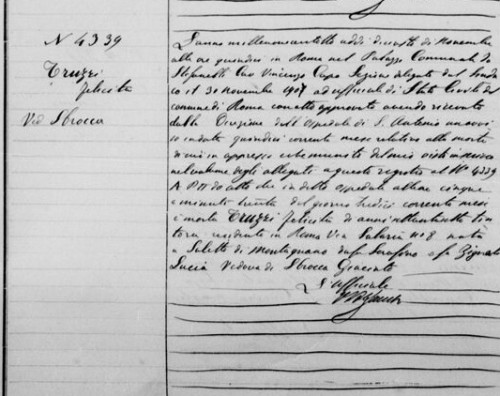 N 4339
Truzzi
felicita
Ved Sbrocca
L'anno millenovecentotto addì diciotto di Novembre
alle ore quindici in Roma nel Palazzo Comunale Io
Stefanelli Cav Vincenzo Capo Sezione delegato dal Sindaco
il 30 novembre 1907 ad ufficiale di Stato Civile del
comune di Roma con atto approvato avendo ricevuto
dalla Direzione dell'ospedale di S. Antonio un avviso
in data quindici corrente mese relativo alla morte
di cui in appresso e che munito del mio visto inserisco
nel volume degli allegati a questo registro al N° 4339
do atto che in detto ospedale alle ore cinque
e minuti trenta del giorno tredici corrente mese
è morta Truzzi felicita di anni
residente in Roma Via Salaria N° 8 nata
a Saletto di Montagnana da fu Serafino e fu
Lucia Vedova di Sbrocca
L'ufficiale